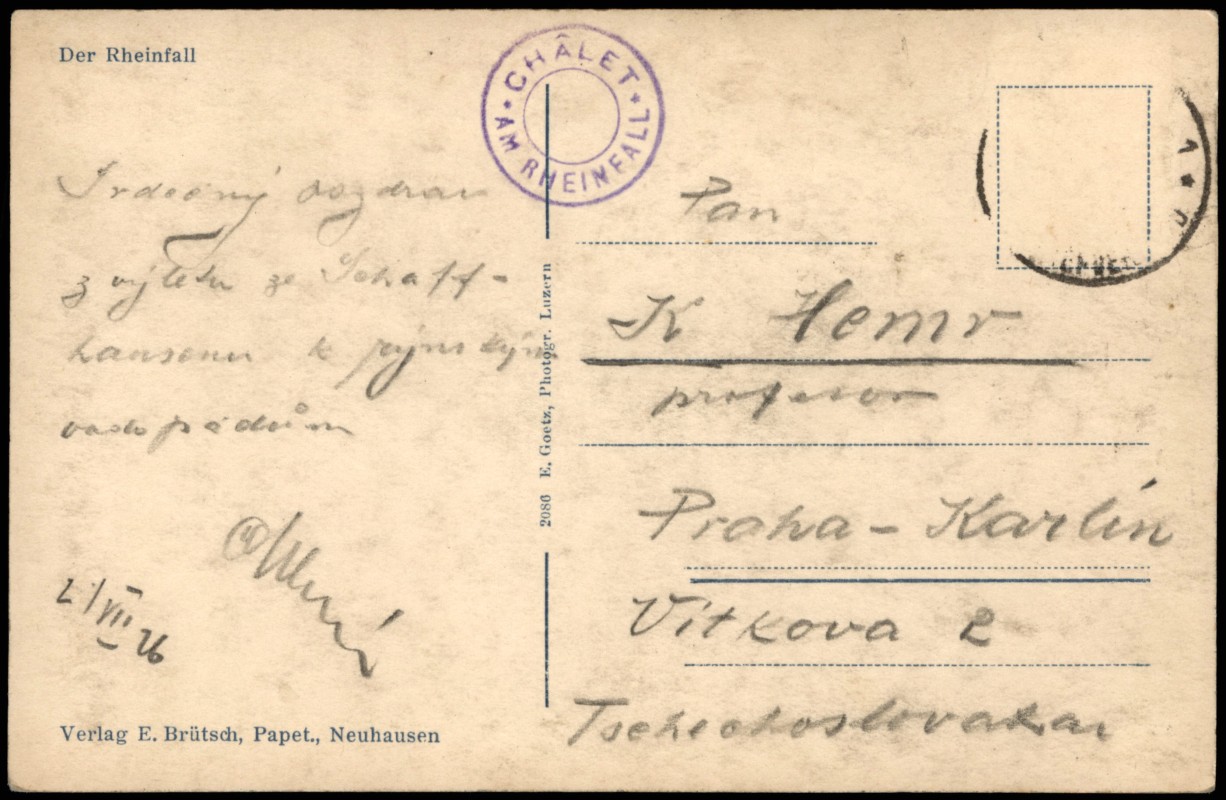 Der Rheinfall
CHÂLET
AM RHEINFALL
Srdečný pozdrav
z výletu ze Schaff-
hausenu k rýnským
vodopádům
2/VII 26
Verlag E. Brütsch, Papet., Neuhausen
2086 E. Goetz, Photogr. Luzern
Pan
K Hemr
profesor
Praha - Karlín
Vítkova 2
Tschechoslovakai